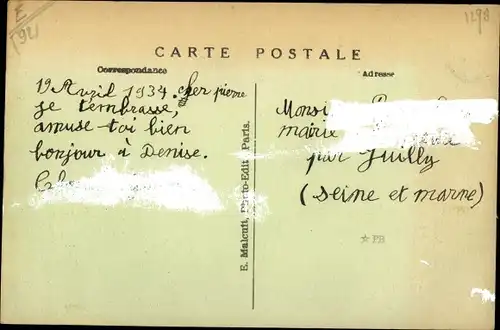 E
(92)
1298
CARTE POSTALE
Correspondance
Adresse
19 Avril 1934. cher pierre
je t'embrasse,
amuse-toi bien
bonjour à Denise.
E. Malcuit, Photo-Edit. Paris.
Monsi
mairie
par Juilly
(seine et marne)
★ FB